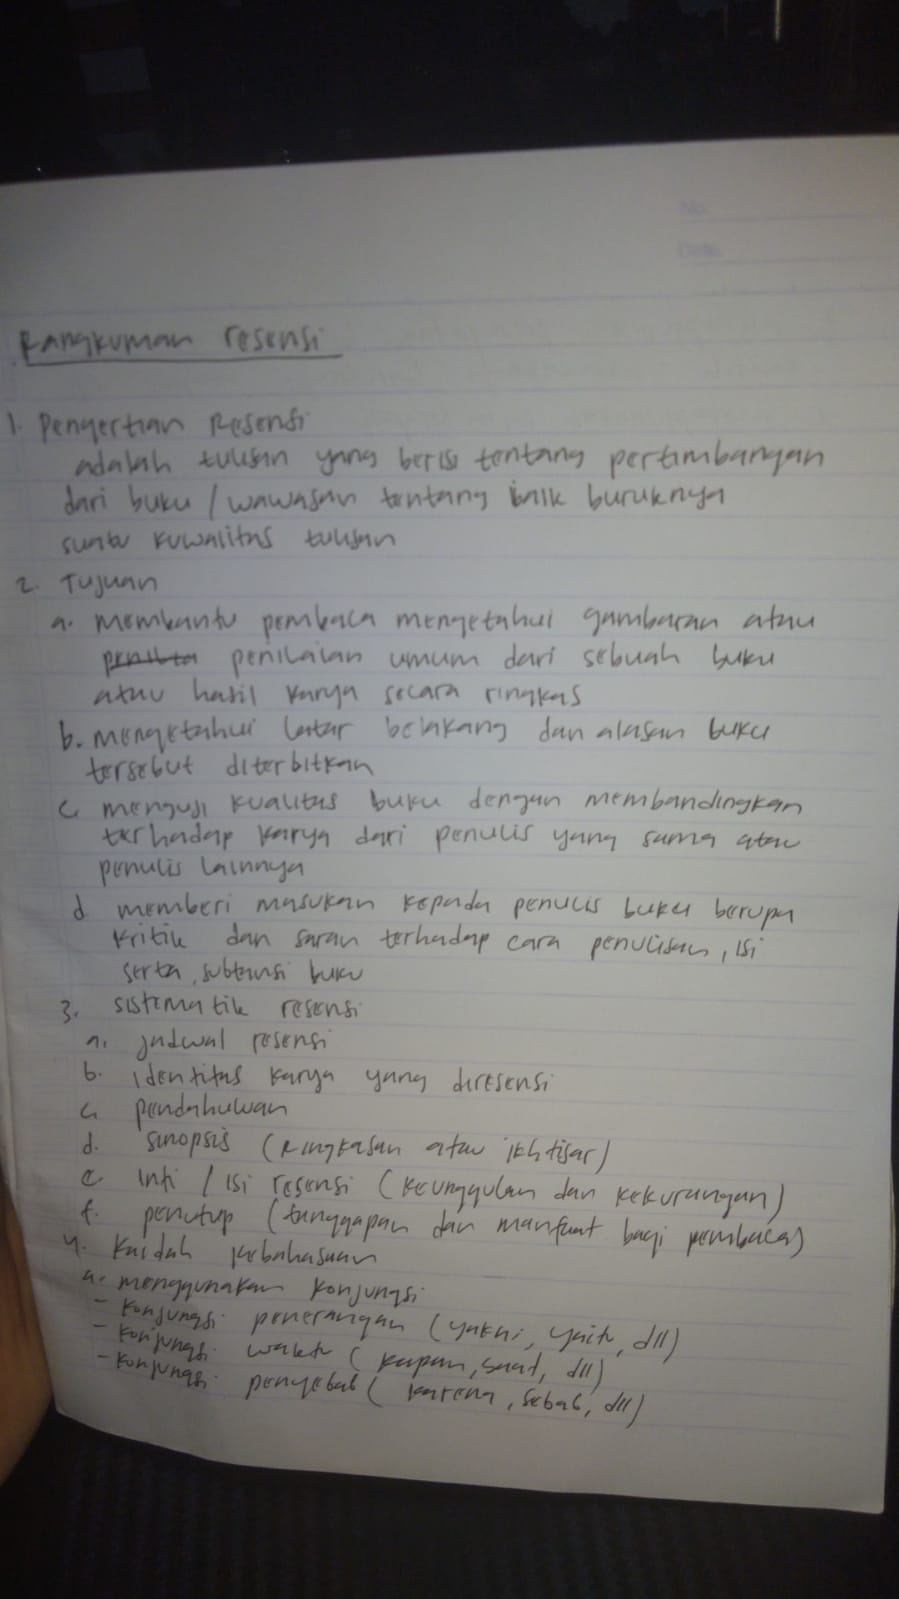 No.
Date.
Rangkuman resensi
1. Pengertian Resensi
adalah tulisan yang berisi tentang pertimbangan
dari buku / wawasan tentang baik buruknya
suatu kuwalitas tulisan
2. Tujuan
a. membantu pembaca mengetahui gambaran atau
penilaian umum dari sebuah buku
atau hasil karya secara ringkas
b. mengetahui latar belakang dan alasan buku
tersebut diterbitkan
c menguji kualitas buku dengan membandingkan
terhadap karya dari penulis yang sama atau
penulis lainnya
d memberi masukan kepada penulis buku berupa
kritik dan saran terhadap cara penulisan, isi
serta, subtansi buku
3. sistematik resensi
a. jadwal resensi
b. identitas karya yang diresensi
c pendahuluan
d. sinopsis (ringkasan atau ikhtisar)
e inti / isi resensi (keunggulan dan kekurangan)
f. penutup (tanggapan dan manfaat bagi pembaca)
4. kaidah kebahasaan
a. menggunakan konjungsi
- konjungsi penerangan (yakni, yaitu, dll)
- konjungsi waktu (kapan, saat, dll)
- konjungsi penyebab (karena, sebab, dll)